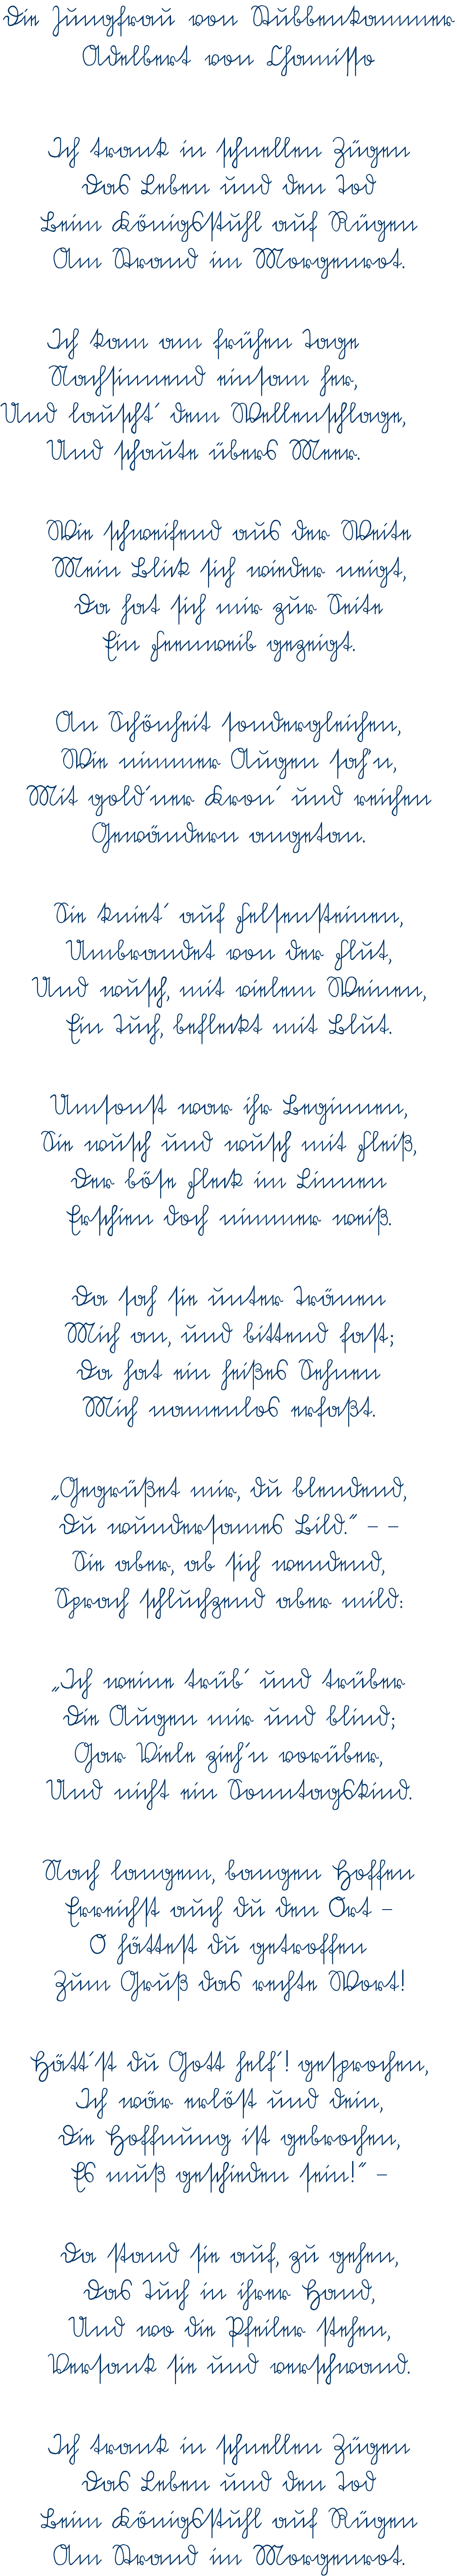 Die Jungfrau von Stubbenkammer
Adelbert von Chamisso
Ich trank in schnellen Zügen
Das Leben und den Tod
Beim Königsstuhl auf Rügen
Am Strand im Morgenrot.
Ich kam am frühen Tage
Nachsinnend einsam her,
Und lauscht´ dem Wellenschlage,
Und schaute übers Meer.
Wie schweifend aus der Weite
Mein Blick sich wieder neigt,
Da hat sich mir zur Seite
Ein Feenweib gezeigt.
An Schönheit sondergleichen,
Wie nimmer Augen sah'n,
Mit gold´ner Kron´ und reichen
Gewändern angetan.
Sie kniet´ auf Felsensteinen,
Umbrandet von der Flut,
Und wusch, mit vielem Weinen,
Ein Tuch, befleckt mit Blut.
Umsonst war ihr Beginnen,
Sie wusch und wusch mit Fleiß,
Der böse Fleck im Linnen
Erschien doch nimmer weiß.
Da sah sie unter Tränen
Mich an, und bittend fast;
Da hat ein heißes Sehnen
Mich namenlos erfaßt.
„Gegrüßet mir, du blendend,
Du wundersames Bild.“ – –
Sie aber, ab sich wendend,
Sprach schluchzend aber mild:
„Ich weine trüb´ und trüber
Die Augen mir und blind;
Gar Viele zieh´n vorüber,
Und nicht ein Sonntagskind.
Nach langem, bangen Hoffen
Erreichst auch du den Ort –
O hättest du getroffen
Zum Gruß das rechte Wort!
Hätt´st du Gott helf´! gesprochen,
Ich wär erlöst und dein,
Die Hoffnung ist gebrochen,
Es muß geschieden sein!“ –
Da stand sie auf, zu gehen,
Das Tuch in ihrer Hand,
Und wo die Pfeiler stehen,
Versank sie und verschwand.
Ich trank in schnellen Zügen
Das Leben und den Tod
Beim Königsstuhl auf Rügen
Am Strand im Morgenrot.